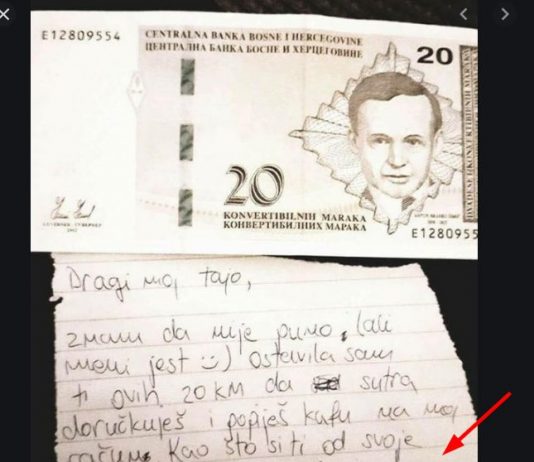 E12809554
CENTRALNA BANKA BOSNE I HERCEGOVINE
ЦЕНТРАЛНА БАНКА БОСНЕ И ХЕРЦЕГОВИНЕ
20
20
KONVERTIBILNIH MARAKA
КОНВЕРТИБИЛНИХ МАРАКА
E1280955
Dragi moj tajo,
znam da nije puno, (ali
meni jest :) Ostavila sam
ti ovih 20 KM da sutra
doručkuješ i popiješ kafu na moj
račun. Kao što si ti od svoje